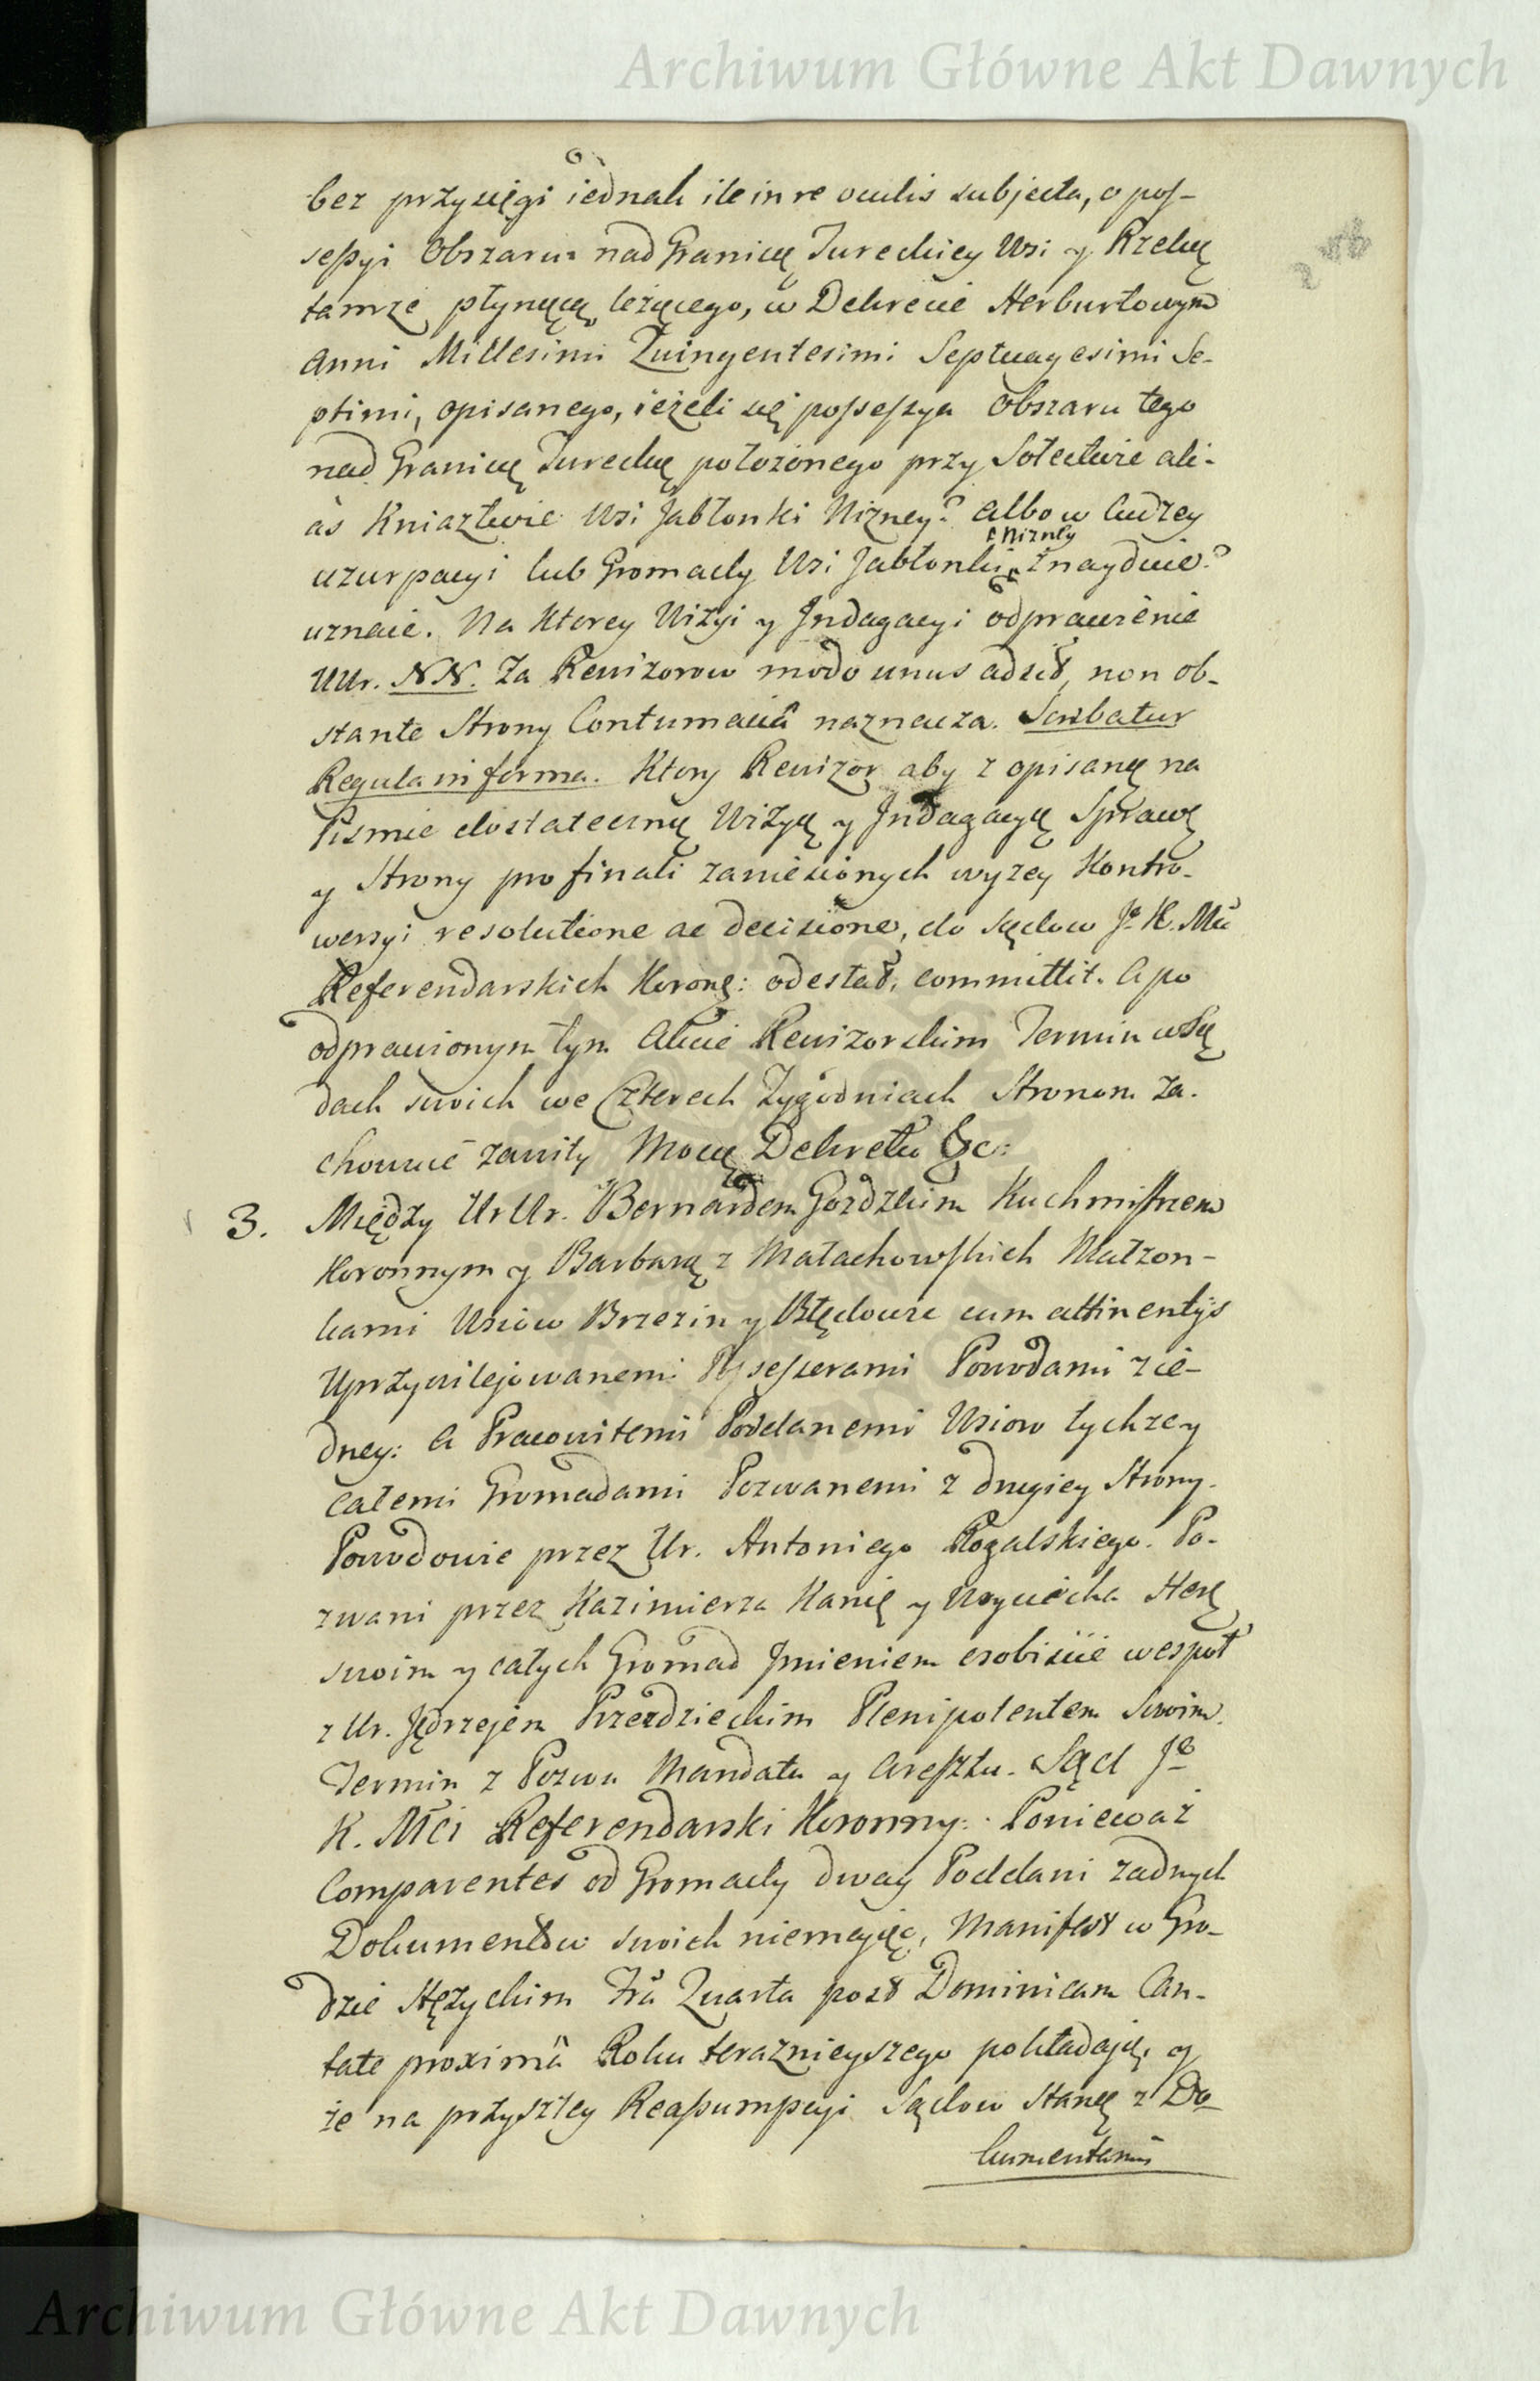 Archiwum Główne Akt Dawnych
bez przysięgi iednak ile in re oculis subjecta, o pos-
sessyi Obszaru nad Granicą Tureckiey Wsi y Rzeką
tamże płynącą leżącego, w Dekrecie Herburtowym
Anni Millesimi Quingentesimi Septuagesimi Se-
ptimi, opisanego, ieżeli się possessya Obszaru tego
nad Granicą Turecką położonego przy Sołectwie ali-
às Kniaztwie Wsi Jabłonki Niżney? albo w Cudzey
uzurpacyi lub Gromady Wsi Jabłonki Niżney znayduie?
uznaie. Na Ktorey Wizyi y Indagacyi odprawienie
UUr. NN. za Rewizorow modo unus adsit, non ob-
stante Strony Contumaciâ naznacza. Scribatur
Regula in forma. Ktory Rewizor aby z opisaną na
Pismie dostateczną Wizyą y Indagacyą Sprawę
y Strony pro finali zaniesionych wyżey Kontro-
wersyi resolutione ac decisione, do Sądow Jº K. Mci
Referendarskich Koronn: odesłał, committit. A po
odprawionym tym Akcie Rewizorskim Termin w Są
dach swoich we Czterech Tygodniach Stronom za-
chowuie zawity Mocą Dekretu &c:
3. Między UrUr. Bernardem Gozdzkim Kuchmistrzem
Koronnym y Barbarą z Małachowskich Małżon-
kami Wsiow Brzezin y Błędowic cum attinentijs
Uprzywilejowanemi Possessorami Powodami z ie-
dney: A Pracowitemi Poddanemi Wsiow tychże y
całemi Gromadami Pozwanemi z drugiey Strony.
Powodowie przez Ur. Antoniego Rogalskiego. Po-
zwani przez Kazimierza Kanię y Woyciecha
swoim y całych Gromad Imieniem osobiście wespoł
z Ur. Jędrzejem Przezdzieckim Plenipotentem Swoim.
Termin z Pozwu Mandatu y Aresztu. Sąd Jº
K. Mci Referendarski Koronny: Ponieważ
Comparentes od Gromady dway Poddani żadnych
Dokumentow swoich niemaiąc, Manifest w Gro-
dzie Stężyckim Fria Quarta post Dominicam Can-
tate proximâ Roku teraznieyszego pokładaią, y
że na przyszłey Reassumpcyi Sądow staną z Do-
kumentami
Archiwum Główne Akt Dawnych